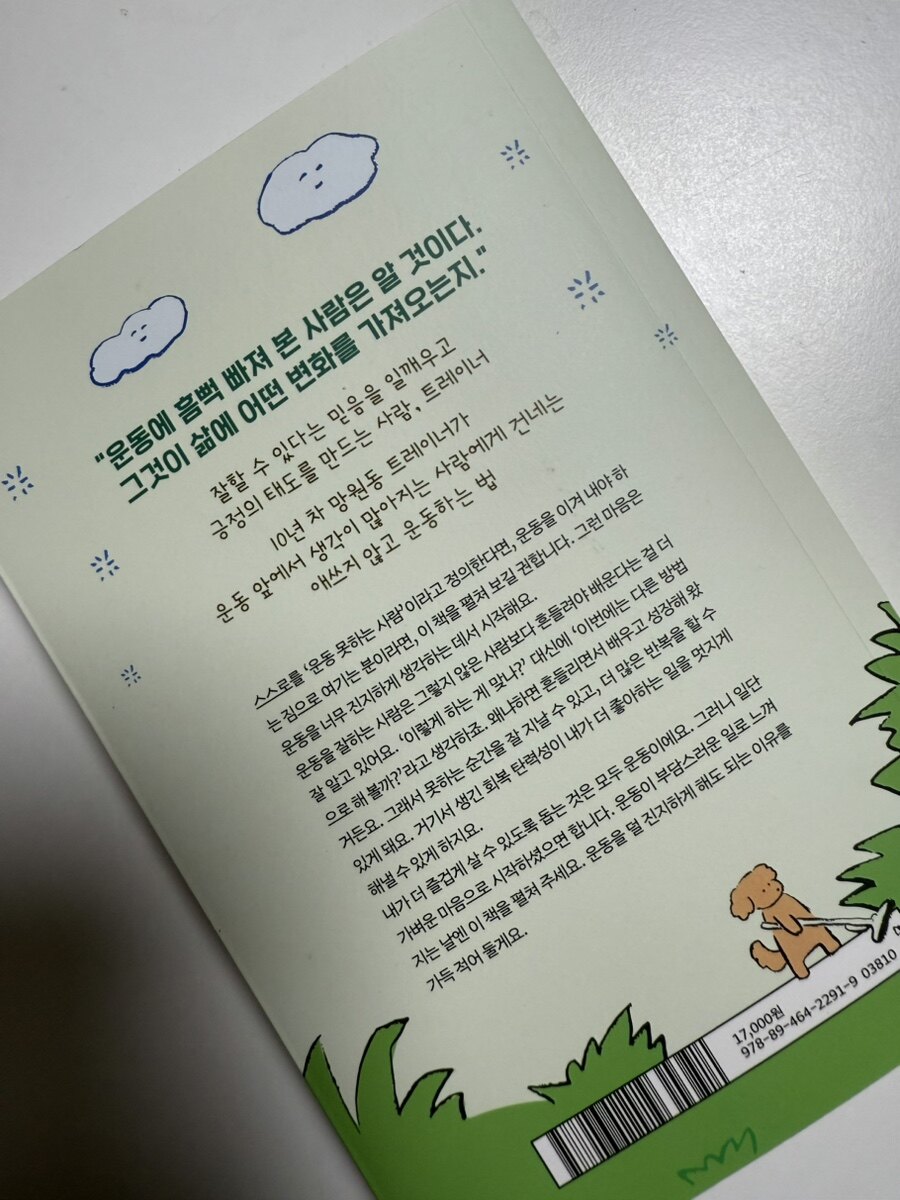 "운동에 흠뻑 빠져 본 사람은 알 것이다.
그것이 삶에 어떤 변화를 가져오는지."
잘할 수 있다는 믿음을 일깨우고
긍정의 태도를 만드는 사람, 트레이너
10년 차 망원동 트레이너가
운동 앞에서 생각이 많아지는 사람에게 건네는
애쓰지 않고 운동하는 법
스스로를 '운동 못하는 사람'이라고 정의한다면, 운동을 이겨 내야 하
는 짐으로 여기는 분이라면, 이 책을 펼쳐 보길 권합니다. 그런 마음은
운동을 너무 진지하게 생각하는 데서 시작해요.
운동을 잘하는 사람은 그렇지 않은 사람보다 흔들려야 배운다는 걸 더
잘 알고 있어요. '이렇게 하는 게 맞나?' 대신에 '이번에는 다른 방법
으로 해 볼까?'라고 생각하죠. 왜냐하면 흔들리면서 배우고 성장해 왔
거든요. 그래서 못하는 순간을 잘 지날 수 있고, 더 많은 반복을 할 수
있게 돼요. 거기서 생긴 회복 탄력성이 내가 더 좋아하는 일을 멋지게
해낼 수 있게 하지요.
내가 더 즐겁게 살 수 있도록 돕는 것은 모두 운동이에요. 그러니 일단
가벼운 마음으로 시작하셨으면 합니다. 운동이 부담스러운 일로 느껴
지는 날엔 이 책을 펼쳐 주세요. 운동을 덜 진지하게 해도 되는 이유를
가득 적어 둘게요.
17,000원
978-89-464-2291-9 03810